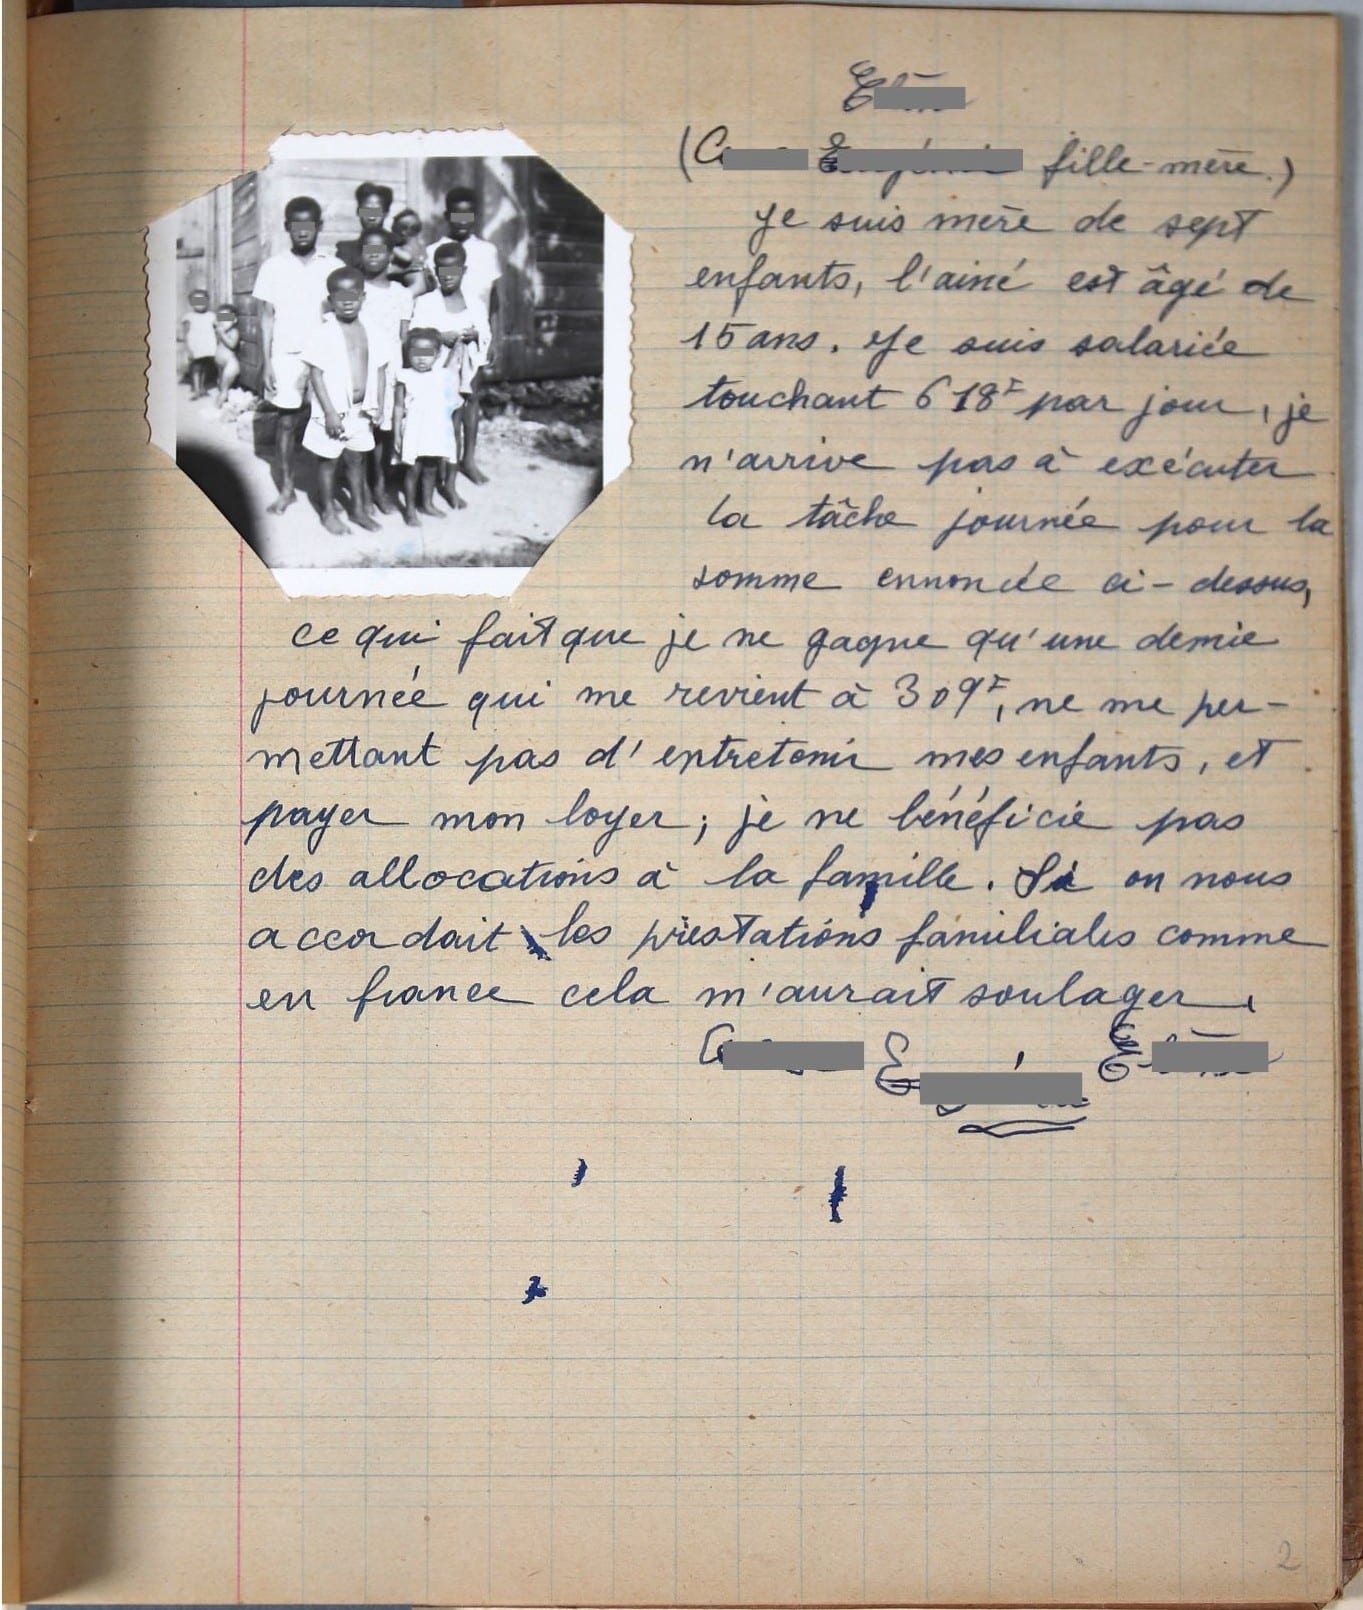 (
fille-mère.)
Je suis mère de sept
enfants, l'ainé est âgé de
15 ans. Je suis salariée
touchant 618F par jour, je
n'arrive pas à exécuter
la tâche journée pour la
somme ennoncée ci-dessus,
ce qui fait que je ne gagne qu'une demie
journée qui me revient à 309F, ne me per-
mettant pas d'entretenir mes enfants, et
payer mon loyer; je ne bénéficie pas
des allocations à la famille. Si on nous
accordait les prestations familiales comme
en france cela m'aurait soulager.
2